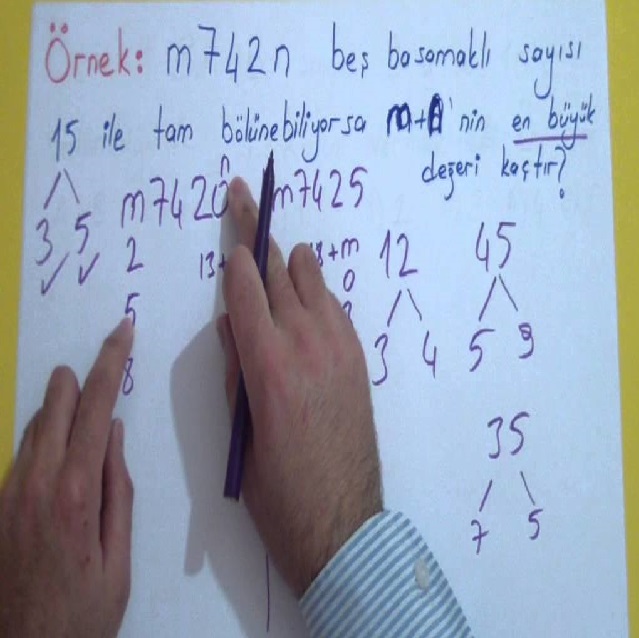 Örnek: m742n beş basamaklı sayısı
15 ile tam bölünebiliyorsa m+n'nin en büyük
değeri kaçtır?
n
m7420 m7425
3 5
2 13+ 18+m 12 45
0
5 3 4 5 9
8
35
7 5